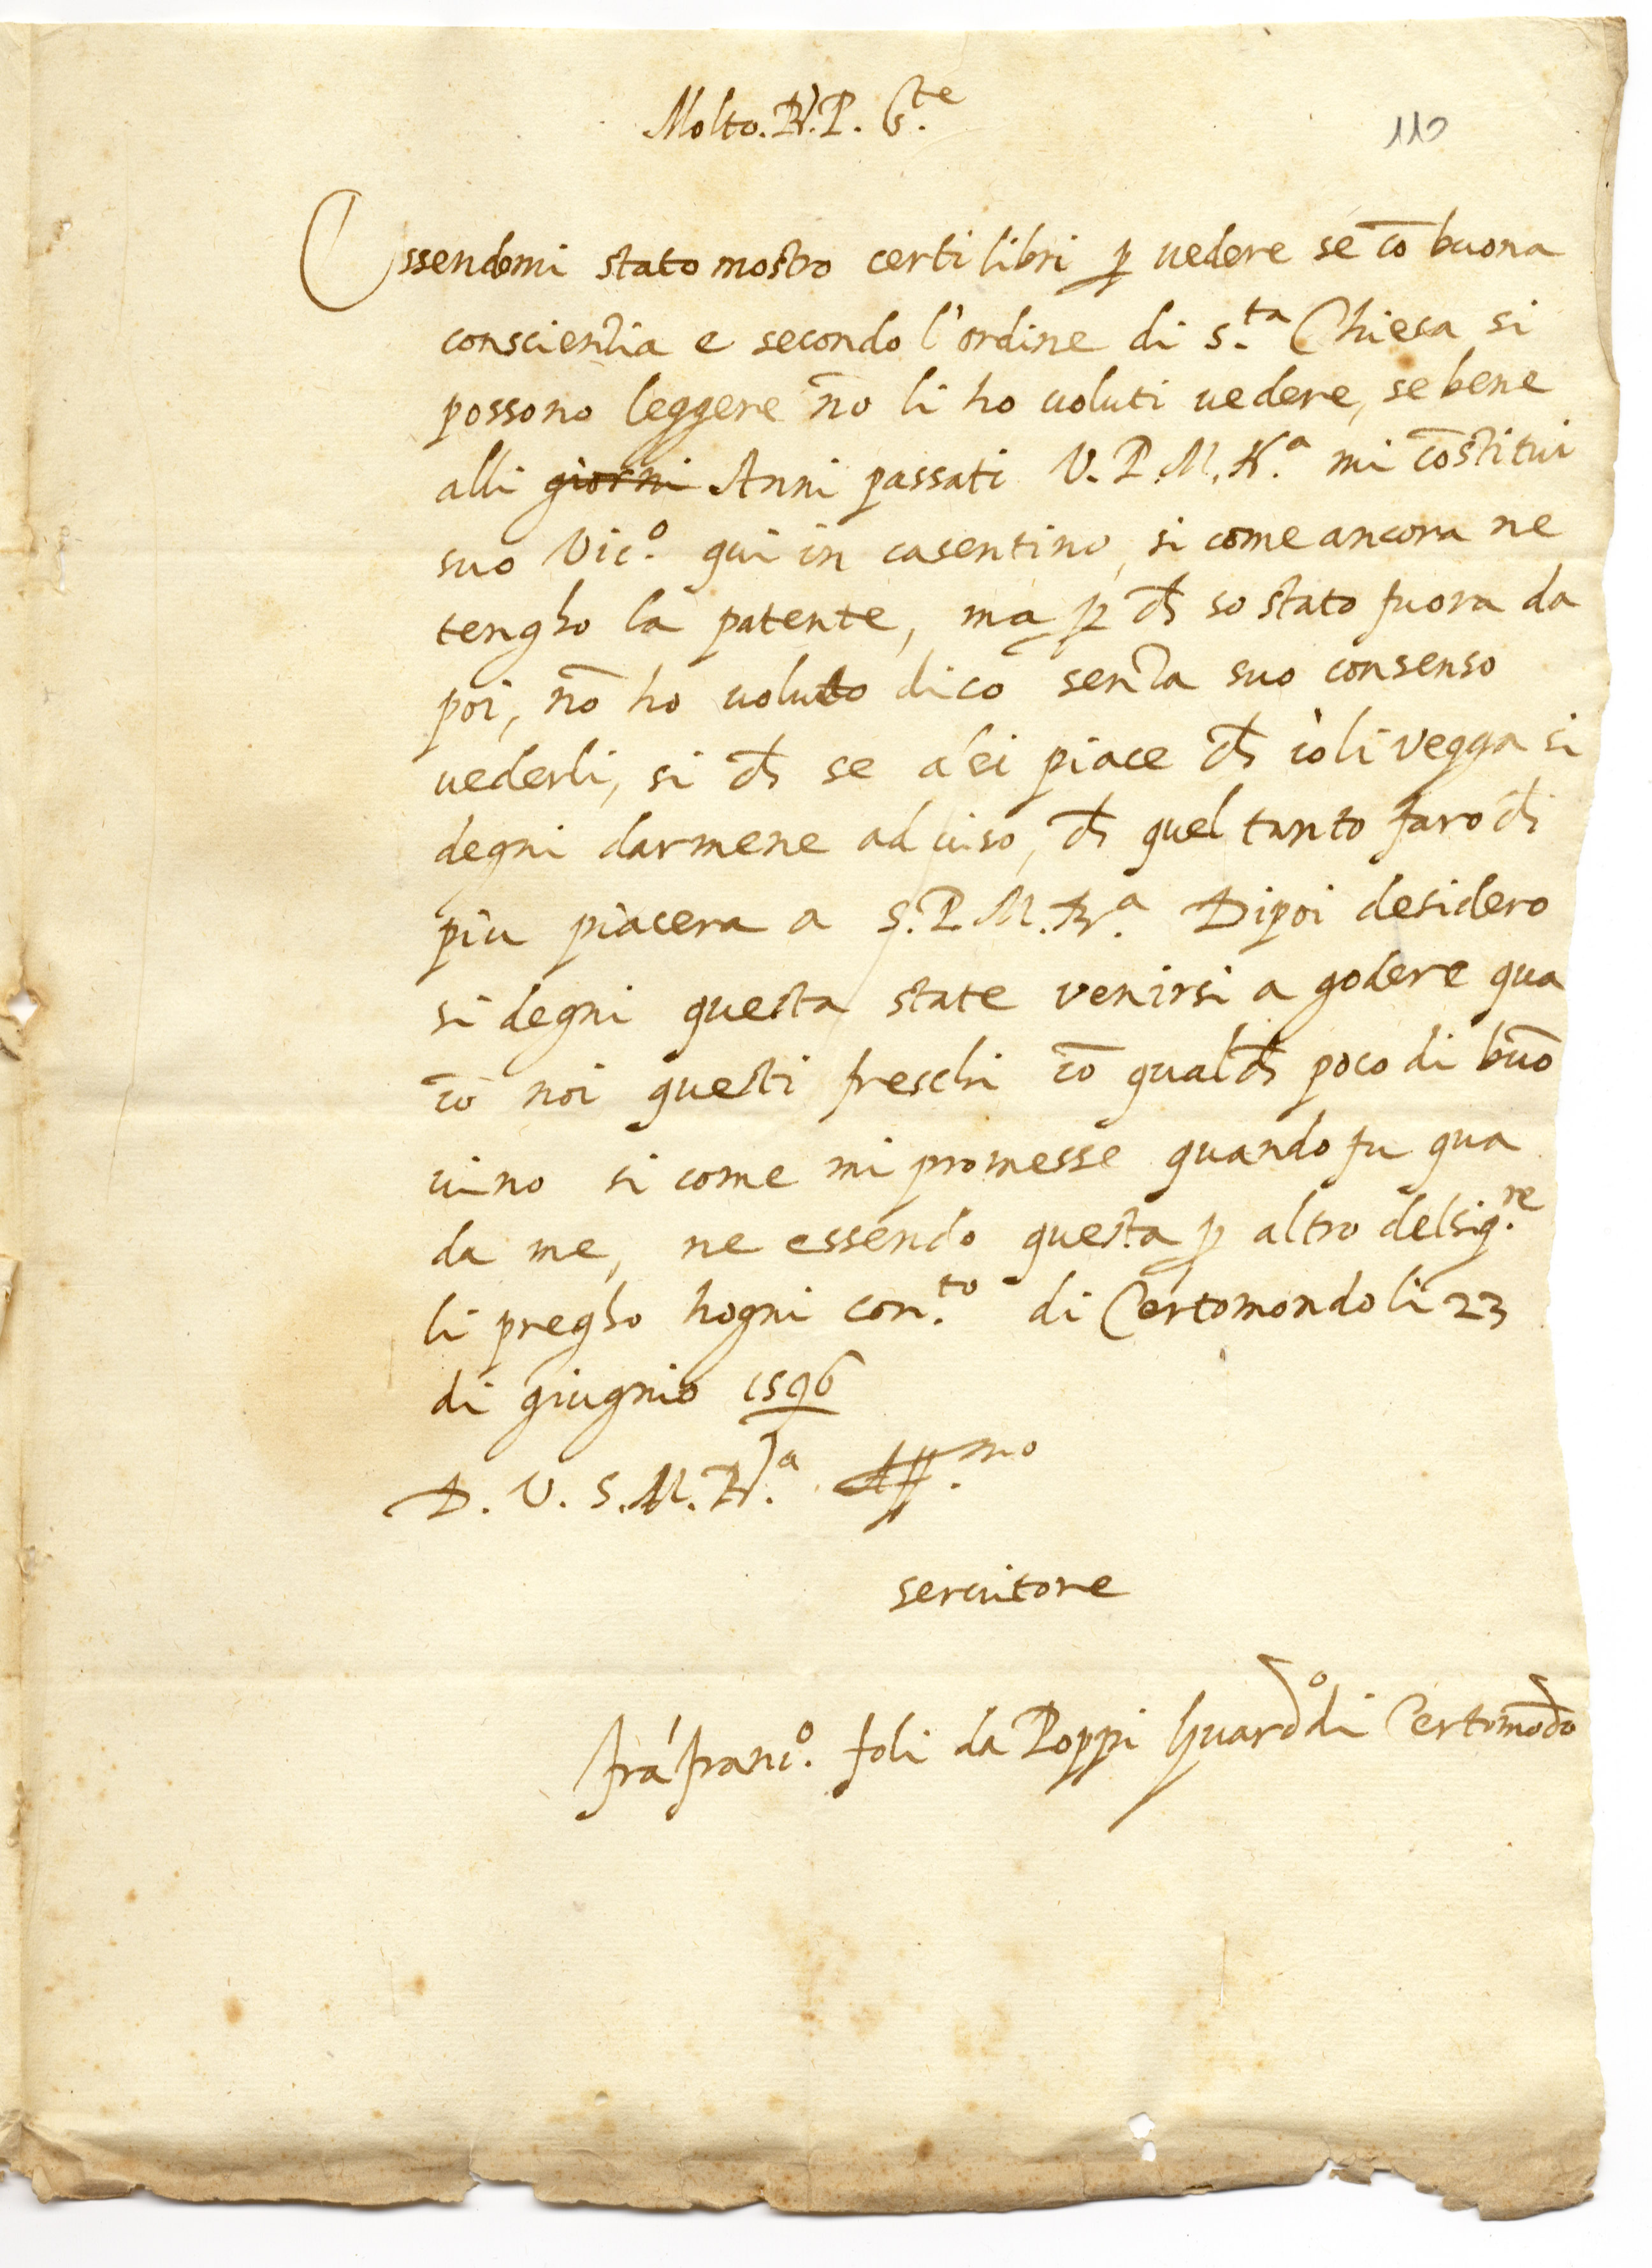 Molto. R. P. G.te
110
Essendomi stato mostro certi libri p uedere se cō buona
conscientia e secondo l'ordine di s.ta Chiesa si
possono leggere nō li ho uoluti uedere, se bene
alli giorni Anni passati V. P. M. R.a mi cōstitui
suo Vic.o qui in casentino, si come ancora ne
tengho la patente, ma p ch so stato fuora da
poi, nō ho uoluto dico senza suo consenso
uederli, si ch se a lei piace ch io li vegga si
degni darmene adviso, ch quel tanto faro ch
piu piacera a S. P. M. R.a Dipoi desidero
si degni questa state venirsi a godere qua
cō noi questi freschi cō qualch poco di buō
vino si come mi promesse quando fu qua
da me, ne essendo questa p altro del sig.re
li pregho hogni con.to di Certomondo li 23
di giugnio 1596
D. V. S. M. R.a Aff.mo
servitore
fra franc.o foli da Poppi Guard.o di Certomōdo